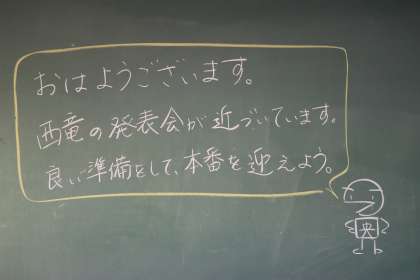 おはようございます。
西竜の発表会が近づいています。
良い準備をして、本番を迎えよう。
央